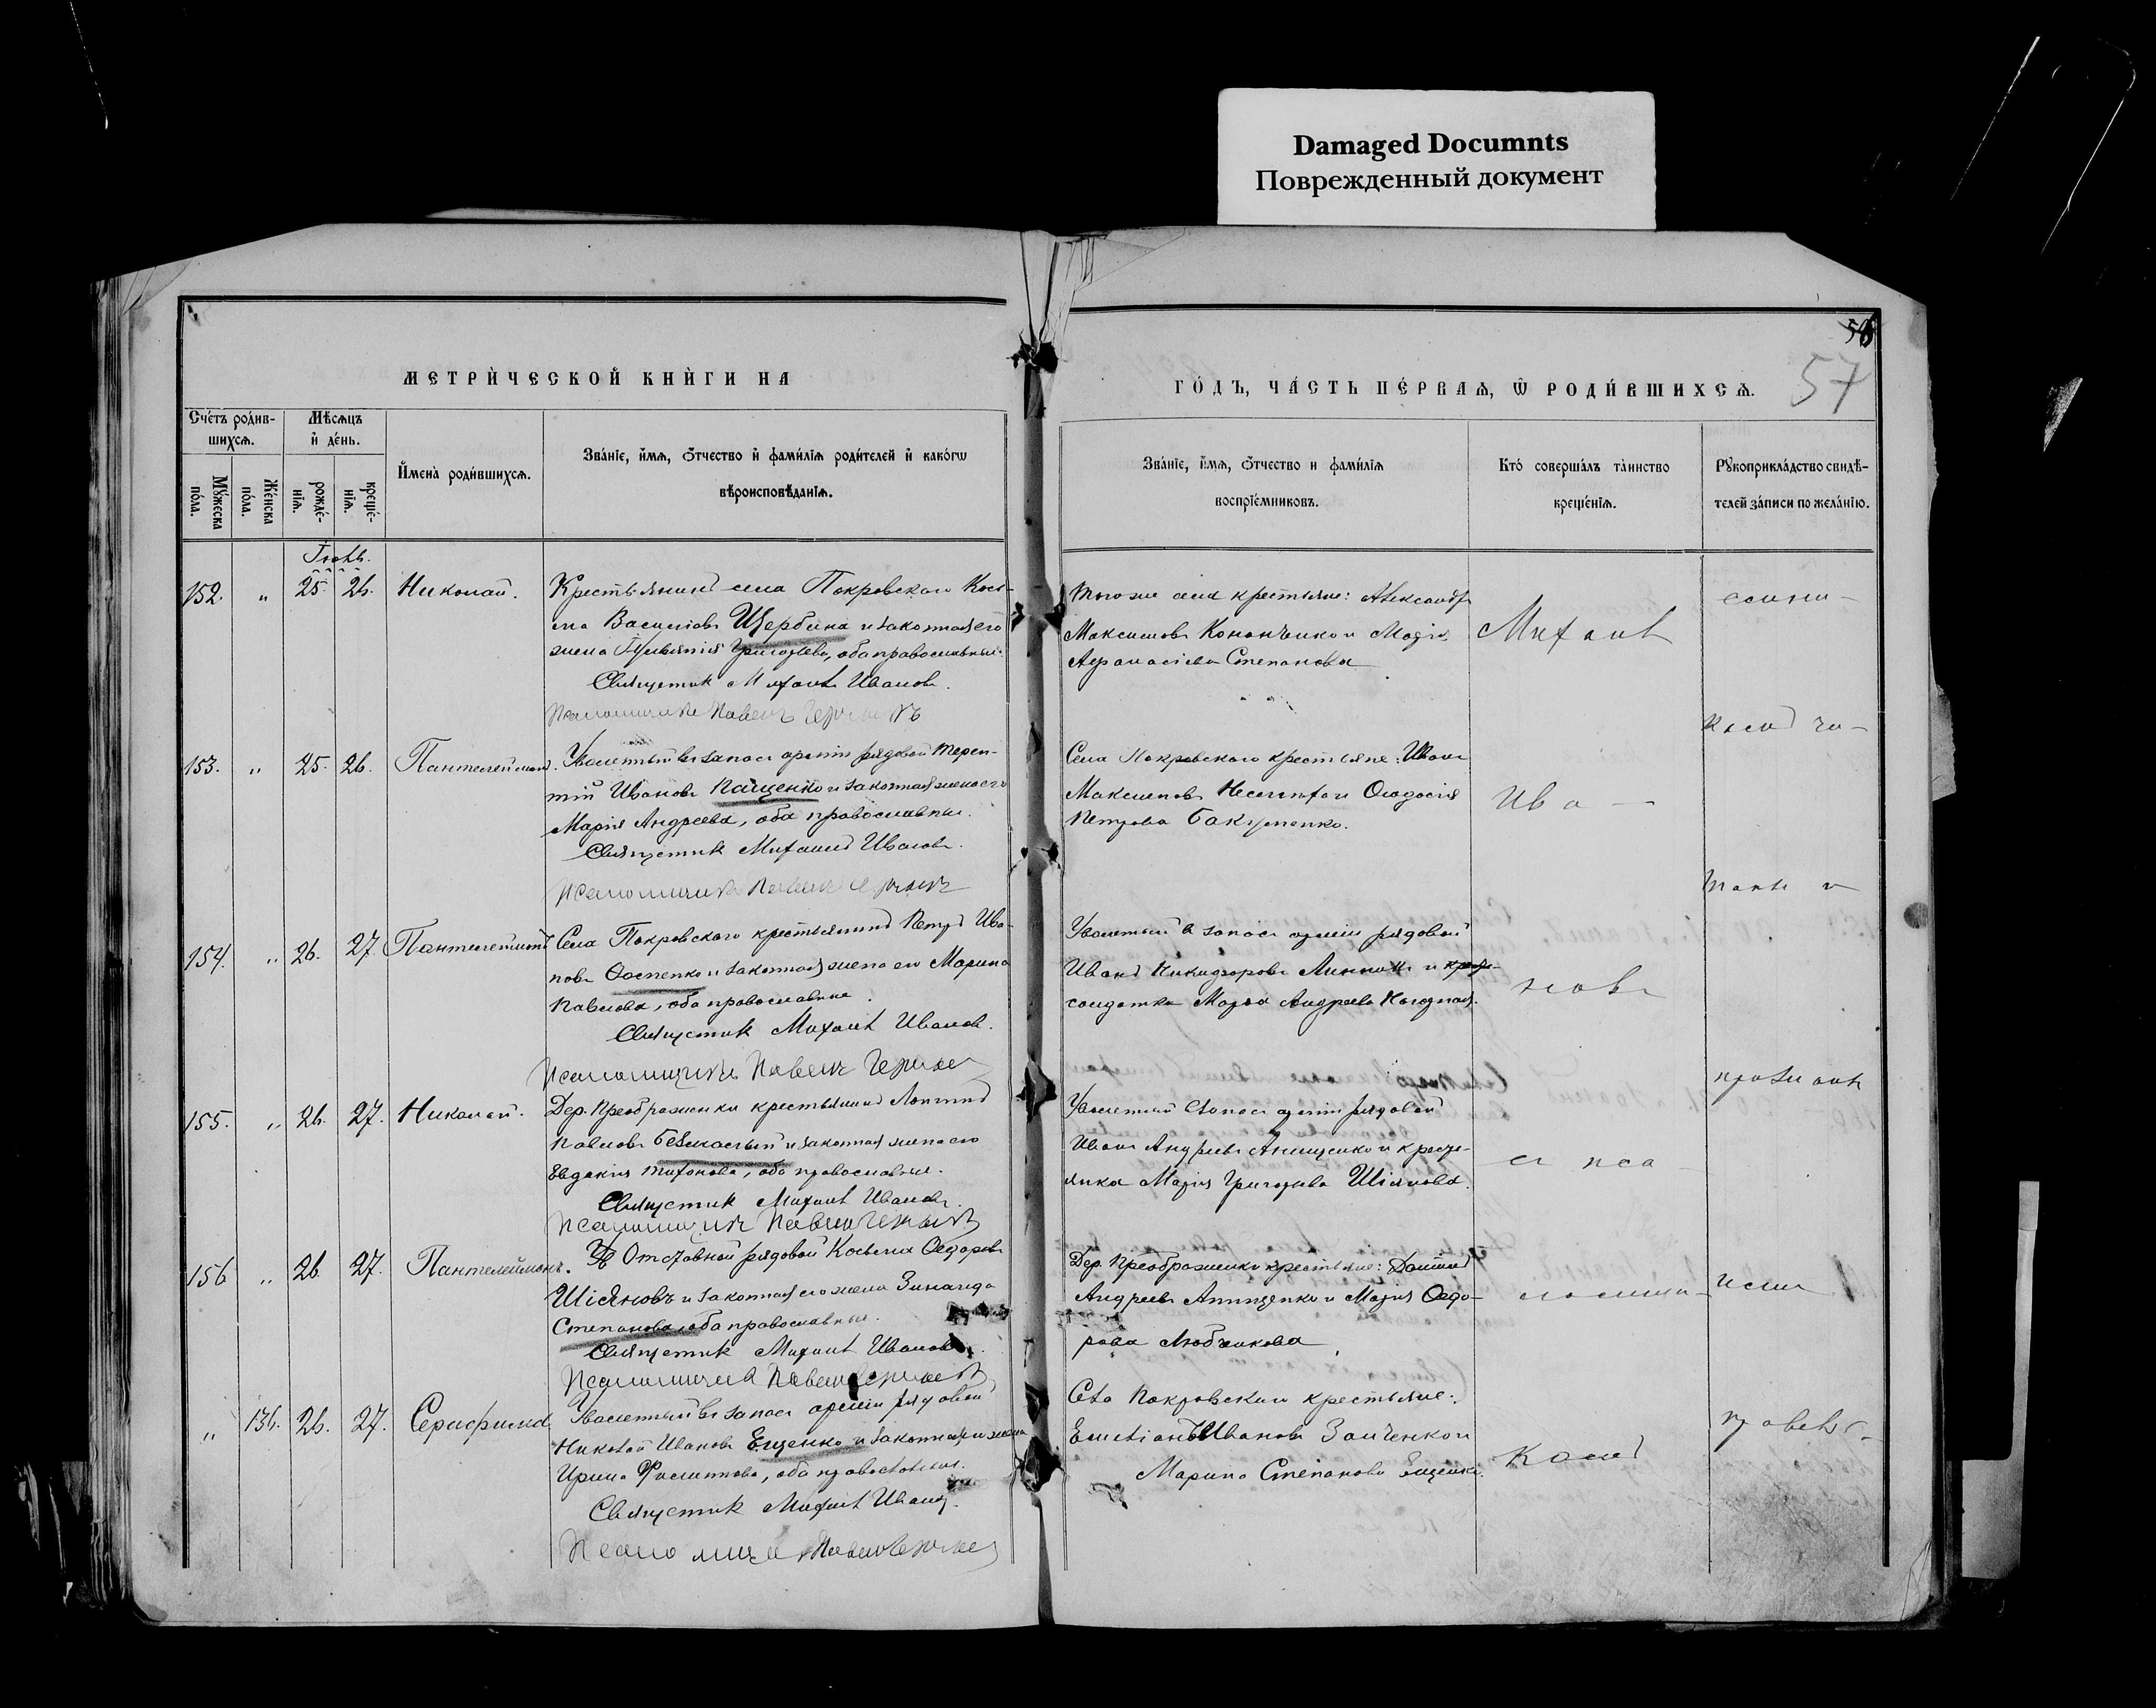 Damaged Documnts
Поврежденный документ
56
57
МЕТРИ́ЧЕСКОЙ КНИ́ГИ НА
ГО́ДЪ, ЧА́СТЬ ПЕ́РВАѦ, Ѿ РОДИ́ВШИХСѦ.
Сче́тъ роди́в-
шихсѧ.
Мѣ́сѧцъ
и҆ де́нь.
Му́жеска
по́ла.
Же́нска
по́ла.
рожде́-
нїѧ.
креще́-
нїѧ.
И҆мена̀ роди́вшихсѧ.
Зва́нїе, и҆́мѧ, ѻ҆́тчество и҆ фами́лїѧ роди́телей и҆ како́гѡ
вѣроисповѣ́данїѧ.
Зва́нїе, и҆́мѧ, ѻ҆́тчество и фами́лїѧ
воспрїе́мниковъ.
Кто̀ соверша́лъ та́инство
креще́нїѧ.
Рꙋкоприкла́дство свидѣ́-
телей за́писи по жела́нїю.
152. " 25. 26. Николай.
Крестьянинъ села Покровскаго Кось-
ма Васильевъ Щербина и законная его
жена Григорьева, оба православные.
Священник Михаил Иванов.
Псаломщикъ Павелъ
Того же села крестьяне: Александръ
Максимовъ Кононенко и Марія
Аѳанасіева Степанова
Михаил
153. " 25. 26. Пантелеймонъ.
Уволенный въ запасъ арміи рядовой Терен-
тій Ивановъ Пащенко и законная жена его
Марія Андреева, оба православные.
Священник Михаилъ Иванов.
Псаломщикъ Павелъ
Села Покровскаго крестьяне: Иванъ
Максимовъ и Ѳеодосія
Петрова Бакуменко.
Ива—
154. " 26. 27. Пантелеймонъ
Села Покровскаго крестьянинъ Петръ Ива-
новъ и законная жена его Марина
Павлова, оба православные.
Священник Михаил Иванов.
Псаломщикъ Павелъ
Уволенный в запасъ арміи рядовой
Иванъ Никифоровъ Линникъ и
солдатка Марья Андреева
новъ
155. " 26. 27. Николай.
Дер. Преображенки крестьянинъ Логгинъ
Павловъ и законная жена его
Евдокія Тихонова, оба православные.
Священник Михаил Иванов.
Псаломщикъ Павелъ
Уволенный в запасъ арміи рядовой
Иванъ Андреевъ Анищенко и кресть-
янка Марія Григорьева Шіянова.
съ пса-
156 " 26. 27. Пантелеймонъ.
Отставной рядовой Косьма Ѳедоровъ
Шіяновъ и законная его жена Зинаида
Степанова, оба православные.
Священник Михаил Иванов.
Псаломщикъ Павелъ
Дер. Преображенки крестьяне: Даніилъ
Андреевъ Анищенко и Марія Ѳедо-
рова Любчикова
ломщи-
" 136. 26. 27. Серафима.
Уволенный въ запасъ арміи рядовой
Николай Ивановъ Ещенко и законная его жена
Ирина Филиппова, оба православные.
Священник Михаил Иванов.
Псаломщикъ Павелъ
Села Покровскаго крестьяне:
Емеліанъ Ивановъ Заиченко и
Марина Степанова Ещенко.
комъ